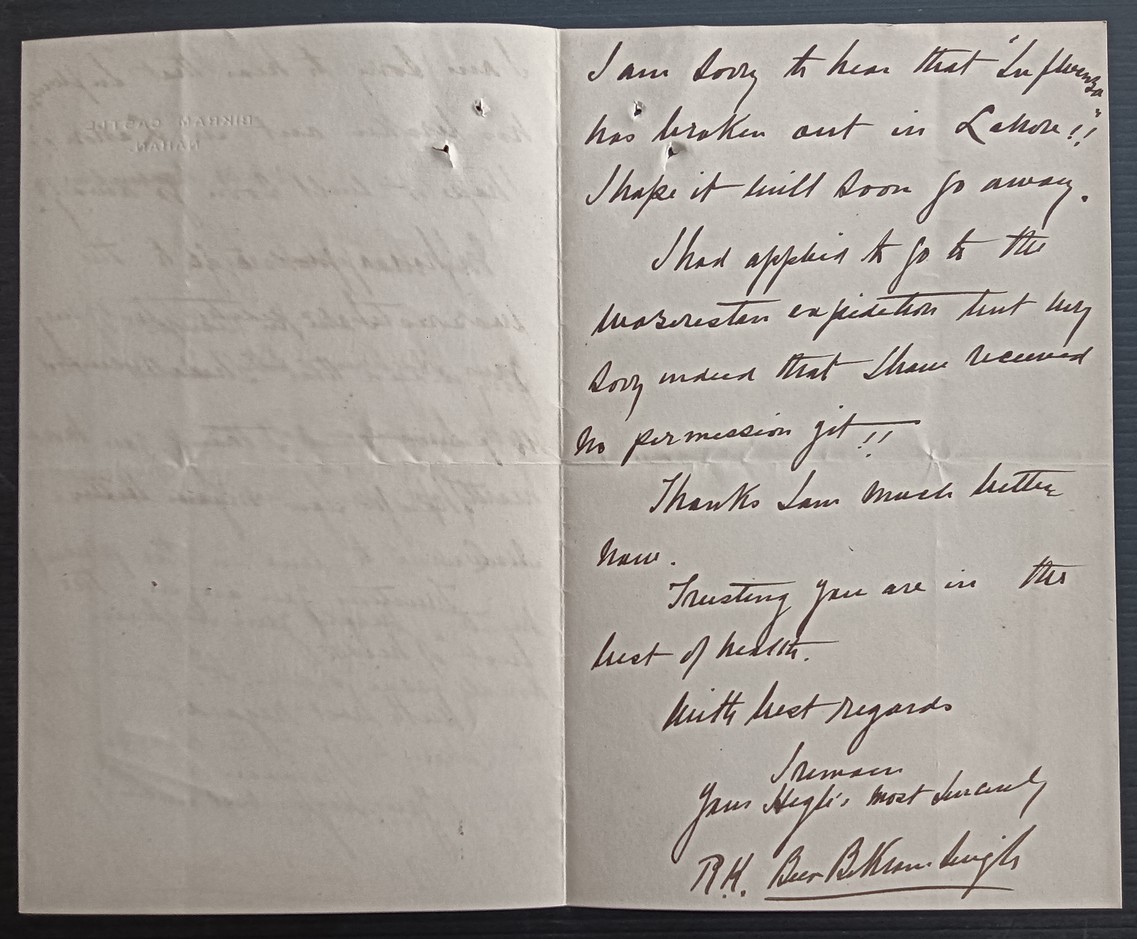 BIKRAM CASTLE
NAHAN.
I am sorry to hear that "Influenza"
has broken out in Lahore!!
I hope it will soon go away.
I had applied to go to the
Wazeristan expedition but very
sorry indeed that I have received
no permission yit!!
Thanks I am much better
now.
Trusting you are in the
best of health.
With best regards
I remain
Your High's most sincerely
R.H. Beer Bikram Singh